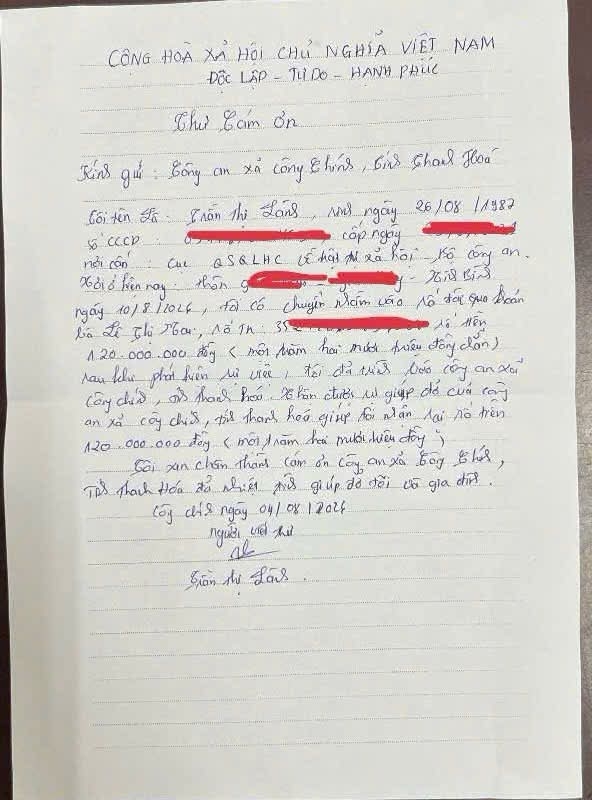 CỘNG HOÀ XÃ HỘI CHỦ NGHĨA VIỆT NAM
ĐỘC LẬP - TỰ DO - HẠNH PHÚC
Thư Cám ơn
Kính gửi : Công an xã Công Chính, tỉnh Thanh Hoá
Tôi tên là : Trần Thị Lành, sinh ngày 26/08/1987
Số CCCD : cấp ngày
nơi cấp : Cục QSQLHC về trật tự xã hội - Bộ công an.
Nơi ở hiện nay : thôn - Ninh Bình
ngày 10/8/2026, tôi có chuyển nhầm vào số tài khoản
bà Lê Thị Mai, số TK : 352 số tiền
120.000.000 đồng (một trăm hai mươi triệu đồng chẵn)
sau khi phát hiện sự việc, tôi đã trình báo công an xã
Công chính, tỉnh thanh hoá. Nhận được sự giúp đỡ của công
an xã công chính, tỉnh thanh hoá giúp tôi nhận lại số tiền
120.000.000 đồng (một trăm hai mươi triệu đồng)
Tôi xin chân thành cám ơn công an xã Công Chính,
Tỉnh Thanh Hóa đã nhiệt tình giúp đỡ tôi và gia đình.
Công chính ngày 04/08/2026
người viết thư
Trần Thị Lành.